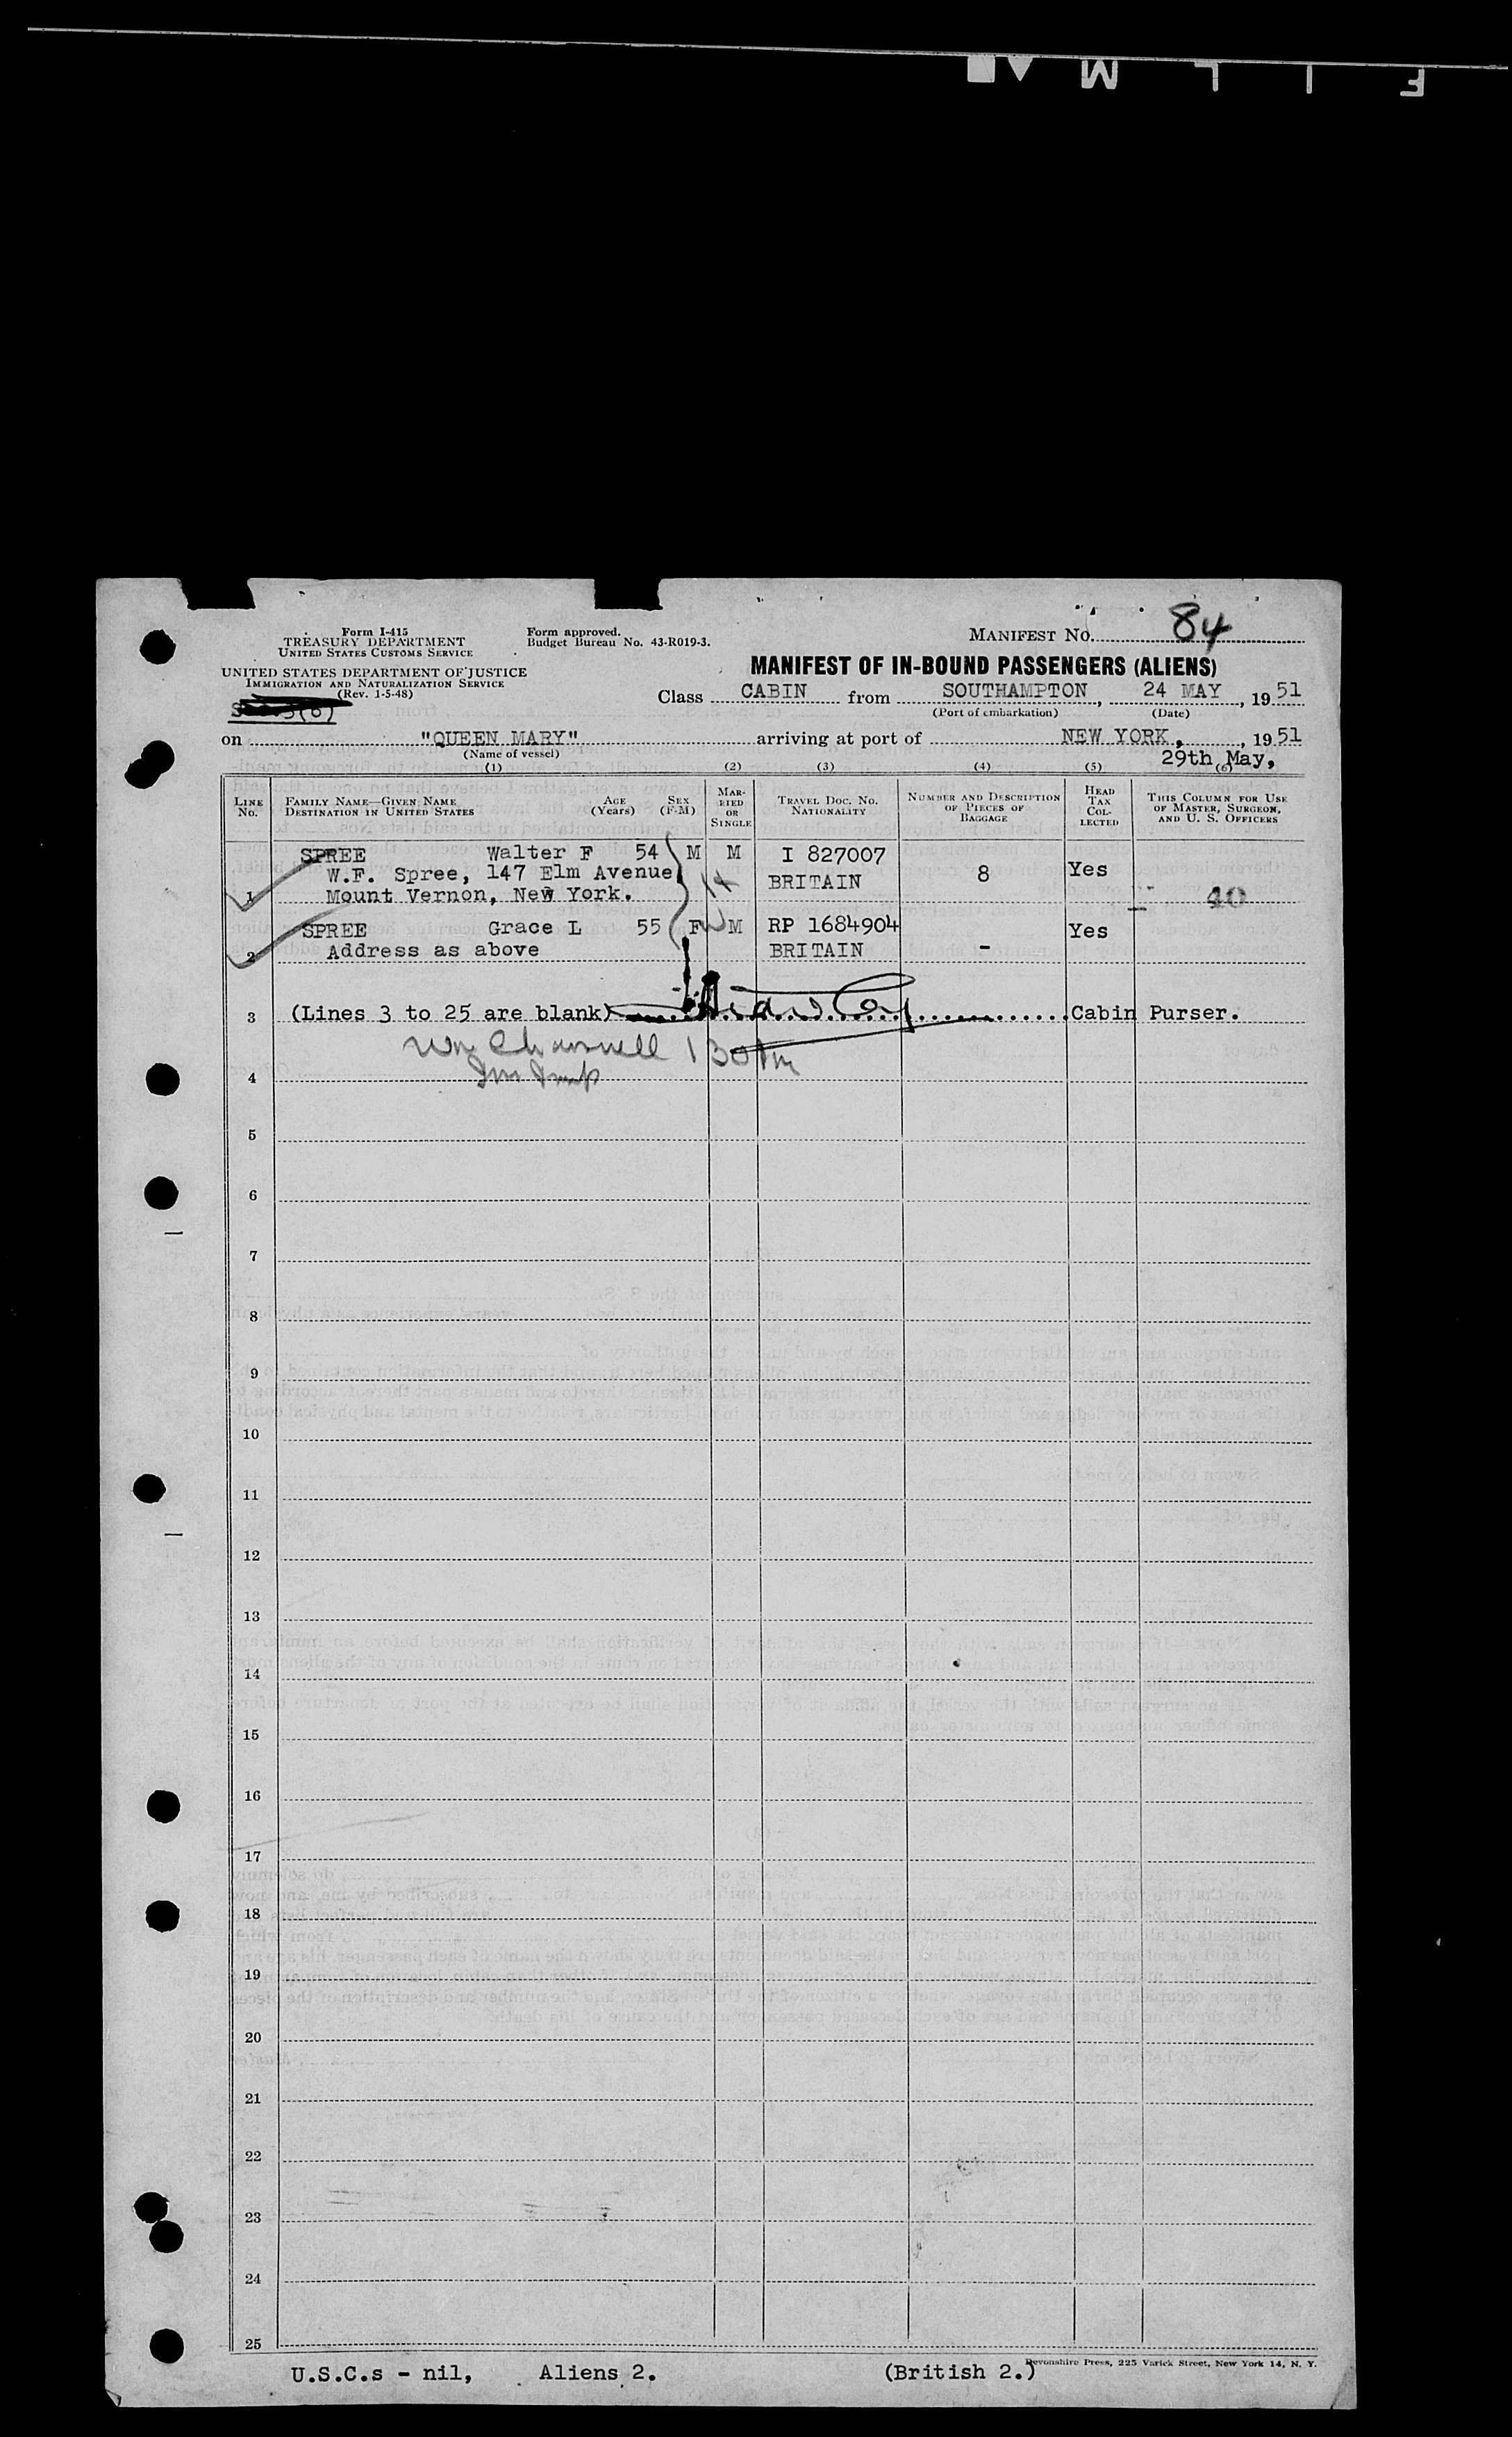 F I L M
Form I-415
TREASURY DEPARTMENT
UNITED STATES CUSTOMS SERVICE
UNITED STATES DEPARTMENT OF JUSTICE
IMMIGRATION AND NATURALIZATION SERVICE
(Rev. 1-5-48)
Form approved.
Budget Bureau No. 43-R019-3.
MANIFEST NO. 84
MANIFEST OF IN-BOUND PASSENGERS (ALIENS)
Class CABIN from SOUTHAMPTON, 24 MAY, 1951
(Port of embarkation) (Date)
on "QUEEN MARY" arriving at port of NEW YORK, , 1951
(Name of vessel) 29th May,
(1) (2) (3) (4) (5) (6)
LINE NO. FAMILY NAME—GIVEN NAME DESTINATION IN UNITED STATES AGE (Years) SEX (F-M) MARRIED OR SINGLE TRAVEL DOC. NO. NATIONALITY NUMBER AND DESCRIPTION OF PIECES OF BAGGAGE HEAD TAX COLLECTED THIS COLUMN FOR USE OF MASTER, SURGEON, AND U. S. OFFICERS
SPREE Walter F 54 M M I 827007
W.F. Spree, 147 Elm Avenue BRITAIN 8 Yes
1 Mount Vernon, New York. 40
SPREE Grace L 55 F M RP 1684904 Yes
2 Address as above BRITAIN -
3 (Lines 3 to 25 are blank) Cabin Purser.
4
5
6
7
8
9
10
11
12
13
14
15
16
17
18
19
20
21
22
23
24
25
U.S.C.s - nil, Aliens 2. (British 2.)
Devonshire Press, 225 Varick Street, New York 14, N. Y.